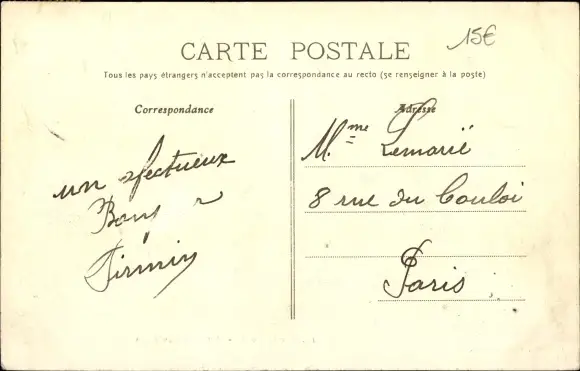 15€
CARTE POSTALE
Tous les pays étrangers n'acceptent pas la correspondance au recto (se renseigner à la poste)
Correspondance
Adresse
un afectueux
Firmin
M.me Lemarié
8 rue du Bouloi
Paris